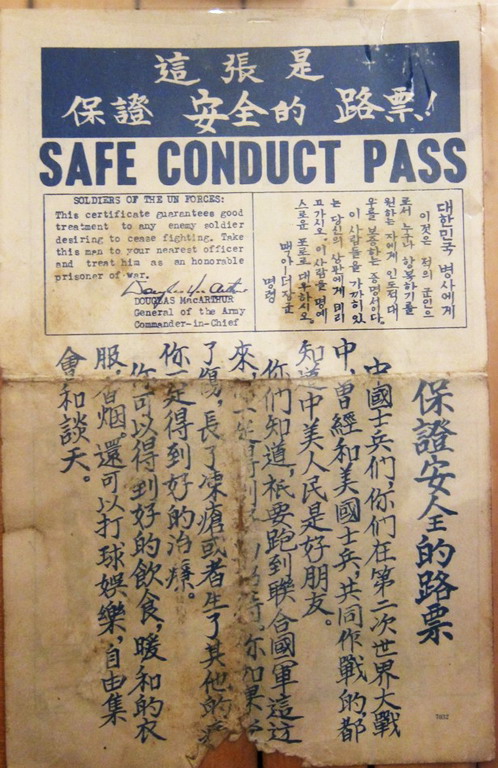 這張是
保證 安全的 路票!
SAFE CONDUCT PASS
SOLDIERS OF THE UN FORCES:
This certificate guarantees good
treatment to any enemy soldier
desiring to cease fighting. Take
this man to your nearest officer
and treat him as an honorable
prisoner of war.
DOUGLAS MacARTHUR
General of the Army
Commander-in-Chief
대한민국 병사에게
이것은 적의 군인으
로서 누구나 항복하기를
원하는 자에게 인도적 대
우를 보증하는 증명서이다.
이 사람을 가까히 있
는 당신의 상관에게 데리
고 가시오. 이 사람을 명예
스로운 포로로 대우하시오.
맥아-더 장군
명령
保證安全的路票
中國士兵們，你们在第二次世界大戰
中，曾經和美國士兵，共同作戰的，都
知道中美人民是好朋友。
你们知道，祇要跑到聯合國軍這边
來，你如果
了傷，長了凍瘡或者生了其他的
你一定得到好的治療。
你可以得到好的飲食，暖和的衣
服，香烟。還可以打球娛樂，自由集
會和談天。
7032